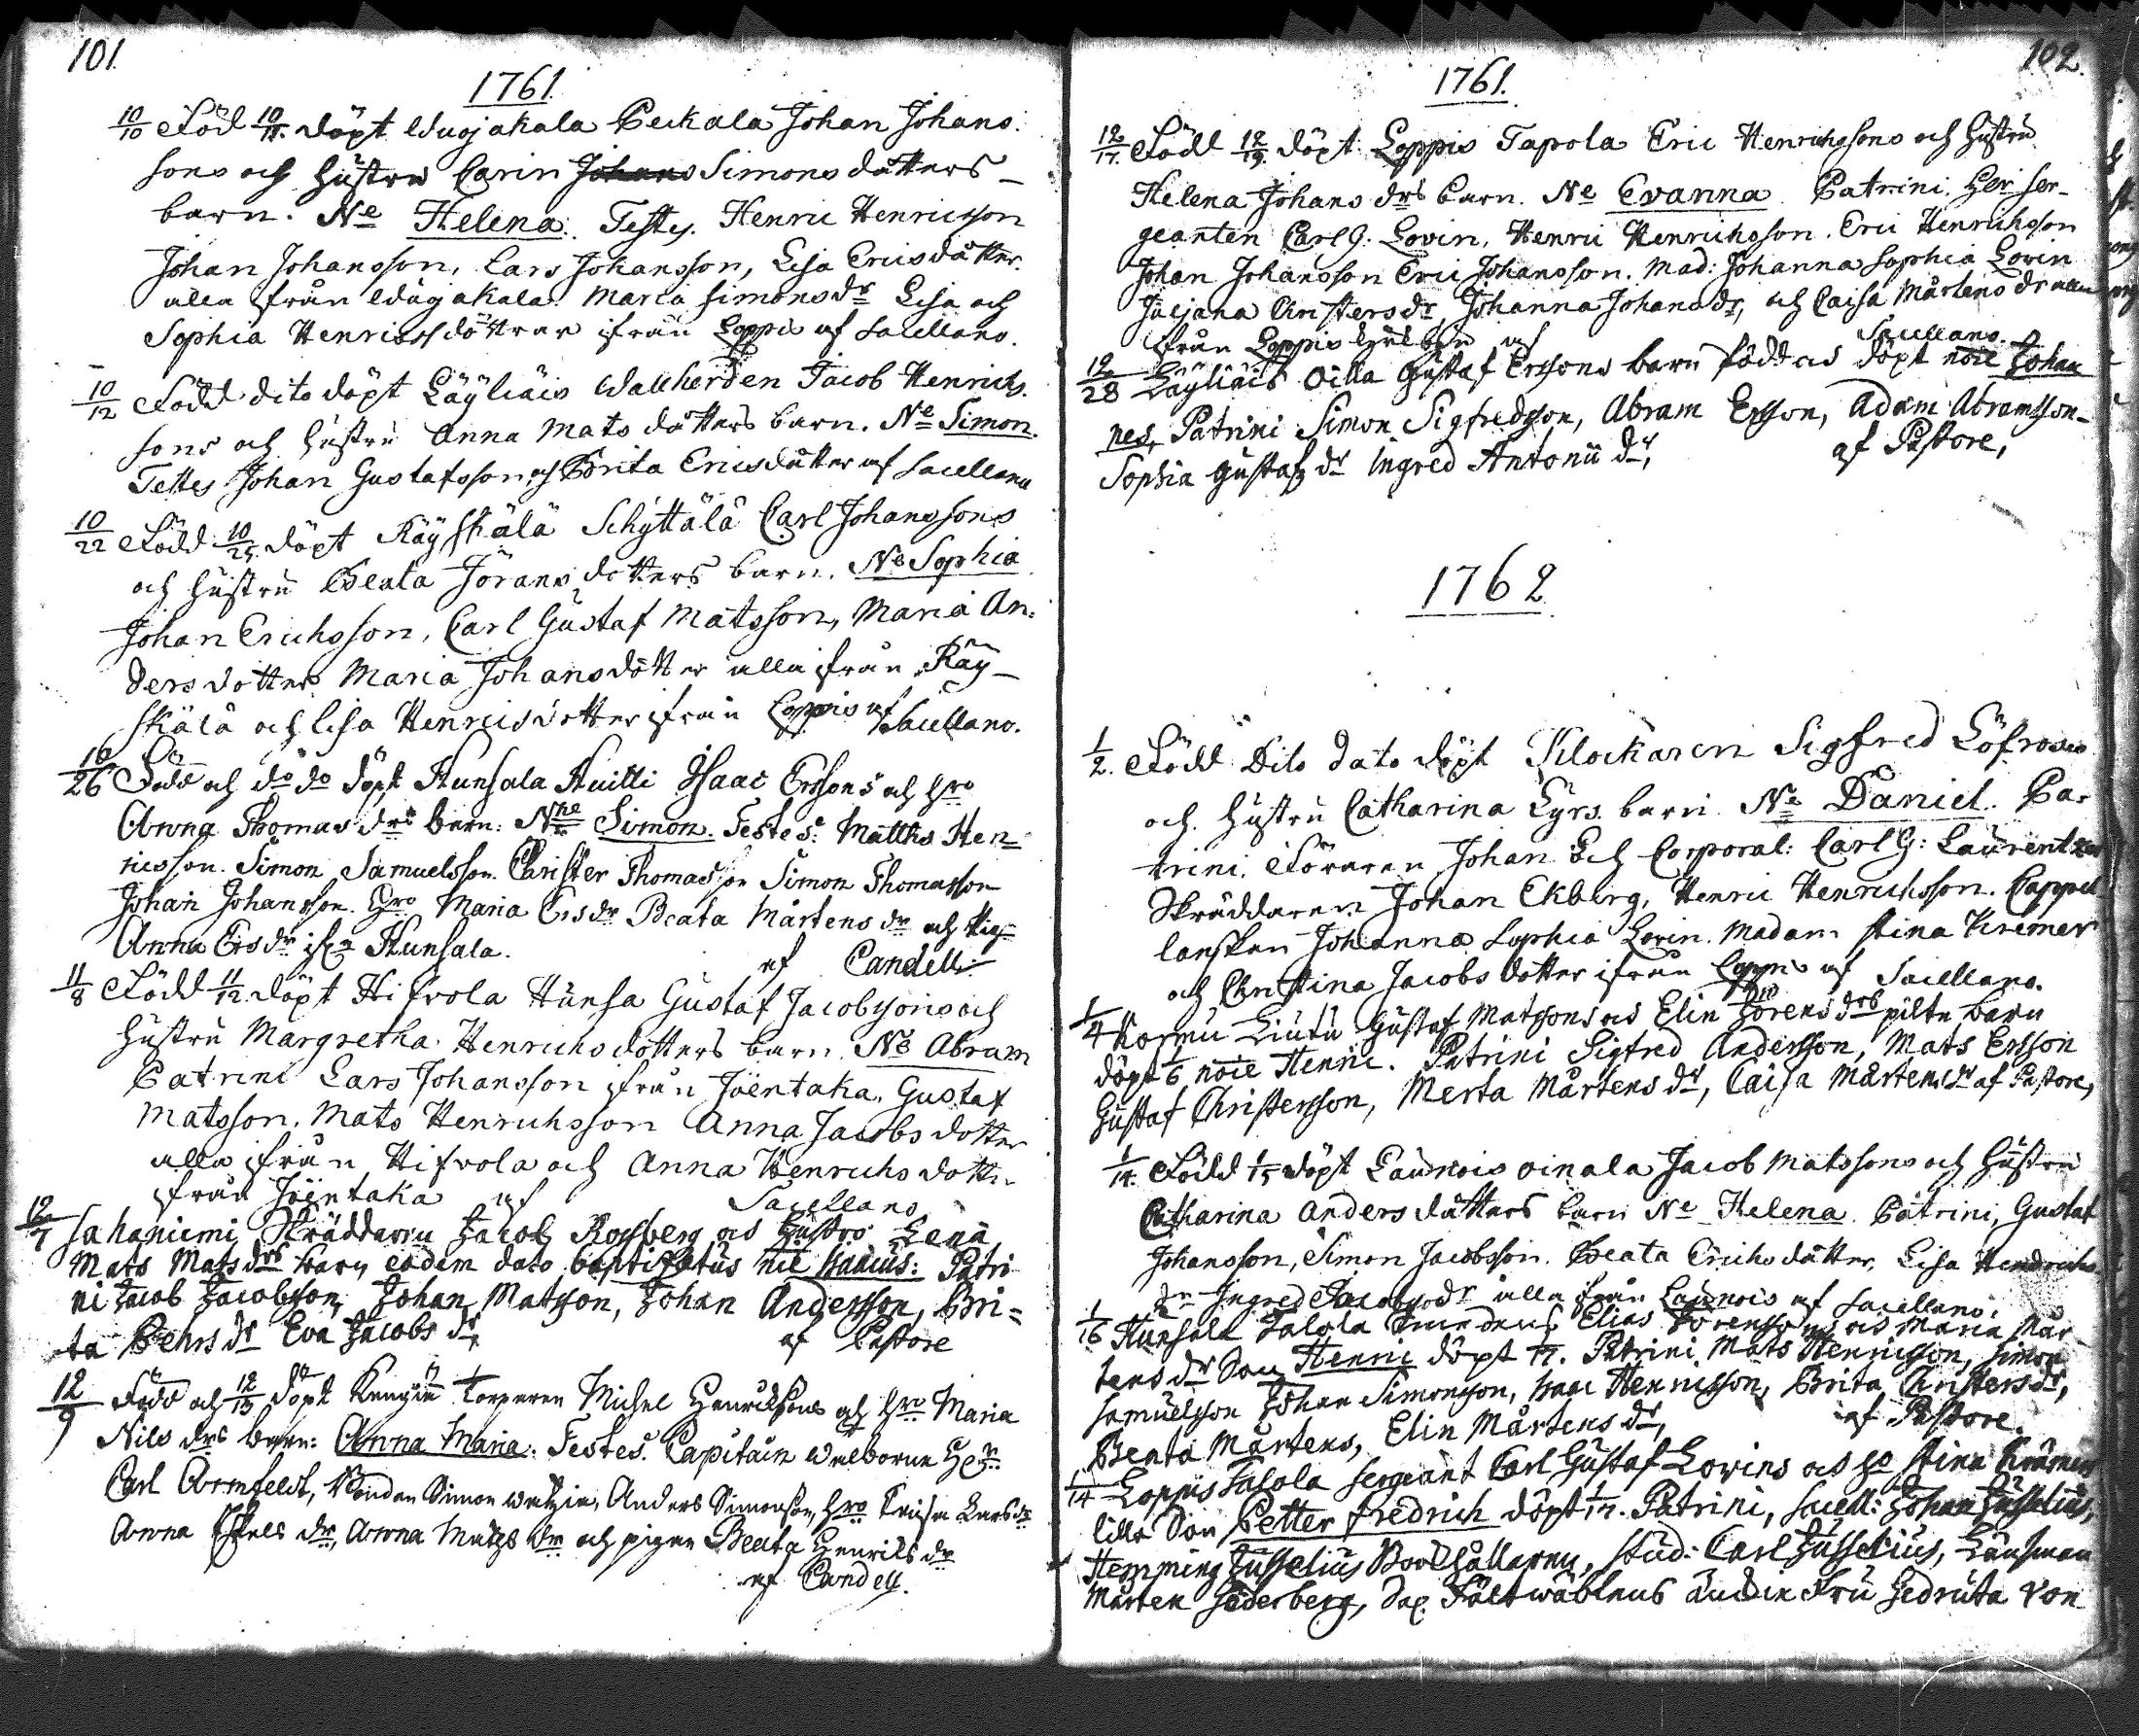 101.
1761.
10/10 Föd 10/11. döpt Wuojakala Peckala Johan Johans-
sons och hustru Carin Johans Simons dotters
barn. Ne Helena. Testes. Henric Henricsson
Johan Johansson, Lars Johansson, Lisa Ericsdotter.
alla ifrån Wuojakala. Maria Simonsdr Lisa och
Sophia Henricsdöttrar ifrån Loppis af Sacellano.
10/12 Född dito döpt Läyliäis Wallherden Jacob Henrichs-
sons och hustru Anna Mats dotters barn. Ne Simon.
Testes Johan Gustafsson och Brita Ericsdotter af Sacellano
10/22 Född 10/25. döpt Räyskälä Schyttälä Carl Johanssons
och hustru Beata Jörans dotters barn. Ne Sophia
Johan Erichsson, Carl Gustaf Matsson, Maria An-
ders dotter Maria Johansdotter alla ifrån Räy-
skälä och Lisa Henricsdotter ifrån Loppis af Sacellano.
10/26 Född och do do döpt Hunsala Huitti Isaac Erssons och hro
Anna Thomas drs barn: Nne Simon. Testes: Matths Hen-
ricsson. Simon Samuelsson. Christer Thomasson Simon Thomasson
Johan Johansson. hro Maria Ersdr Beata Mårtens dr och
Anna Ersdr ifrn Hunsala.
af Candell
11/8 Född 11/12. döpt Hifvola Hunsa Gustaf Jacobssons och
hustru Margretha Henrichsdotters barn. Ne Abram
Patrini Lars Johansson ifrån Joentaka. Gustaf
Matsson. Mats Henrichsson Anna Jacobs dotter
alla ifrån Hifvola och Anna Henrichs dotter
ifrån Joentaka af Sacellano
12/7 Sahaniemi Skräddaren Jacob Rosberg os hustro Lena
Mats Mats drs barn eodem dato baptisatus nie Isaacus: Patri
ni Jacob Jacobsson, Johan Matsson, Johan Andersson, Bri-
ta Pehrs dr Eva Jacobs dr, af Pastore
12/9 Född och 12/13 döpt Torparen Michel Henrikssons och hro Maria
Nils drs barn: Anna Maria. Testes. Capitain Welborne Herr
Carl Armfeldt, Bonden Simon, Anders Simonsson, hro Caisa Larsdr
Anna dr, Anna Mats dr och pigan Beata Henriks dr
af Candell.
102.
1761.
12/17. Född 12/19. döpt Loppis Tapola Eric Henrichssons och hustru
Helena Johans drs barn. Ne Evanna. Patrini. Herr Ser-
geanten Carl G. Lovin, Henric Henrichsson. Eric Henrichsson
Johan Johansson Eric Johansson. Mad: Johanna Sophia Lovin
Juljana Christersdr, Johanna Johansdr, och Caisa Mårtens dr alla
ifrån Loppis by af Sacellano.
12/28 Läyliäis Oilla Gustaf Erssons barn född os döpt noie Johan
nes, Patrini Simon Sigfredsson, Abram Ersson, Adam Abramsson
Sophia Gustafs dr Ingred Antonii dr, af Pastore,
1762
1/2. Född Dito dato döpt Klockaren Sigfred Löfroos
och hustru Catharina Lyrs. barn. Ne Daniel. Pa-
trini. Föraren Johan Corporal: Carl G: Laurentz
Skräddaren Johan Ekberg, Henric Henrichsson. Cappel
lanskan Johanna Sophia Lovin. Madam Stina Kremer
och Christina Jacobs dotter ifrån Loppis af Sacellano.
1/4 Kormu Liutu Gustaf Matssons os Elin Jörens drs pilte barn
döpt 1/6 noie Henric. Patrini Sigfred Andersson, Mats Ersson
Gustaf Christersson, Merta Mårtens dr, Caisa Mårtens dr af Pastore,
1/14. Född 1/15 döpt Launois Oinala Jacob Matssons och hustru
Catharina Anders dotters barn Ne Helena. Patrini, Gustaf
Johansson, Simon Jacobsson. Beata Erichs dotter, Lisa Hendrichs
dr Ingred Jacobs dr alla ifrån Launois af Sacellano.
1/16 Hunsala Jalola Smedens Elias Jörenssons os Maria Mår
tens dr Son Henric döpt 17. Patrini Mats Henricsson, Simon
Samuelsson Johan Simonsson, Isaac Henricsson, Brita Christers dr,
Beata Mårtens, Elin Mårtens dr, af Pastore.
1/14 Loppis Sasola Sergeant Carl Gustaf Lovins os ho Stina Krämers
lilla Son Petter Fredrich döpt 1/17. Patrini, Sacell: Johan Jusselius,
Hemming Jusselius Bookhållaren, Stud: Carl Jusselius, Länsman
Mårten Söderberg, Fältwäblens Fru Hedruta von